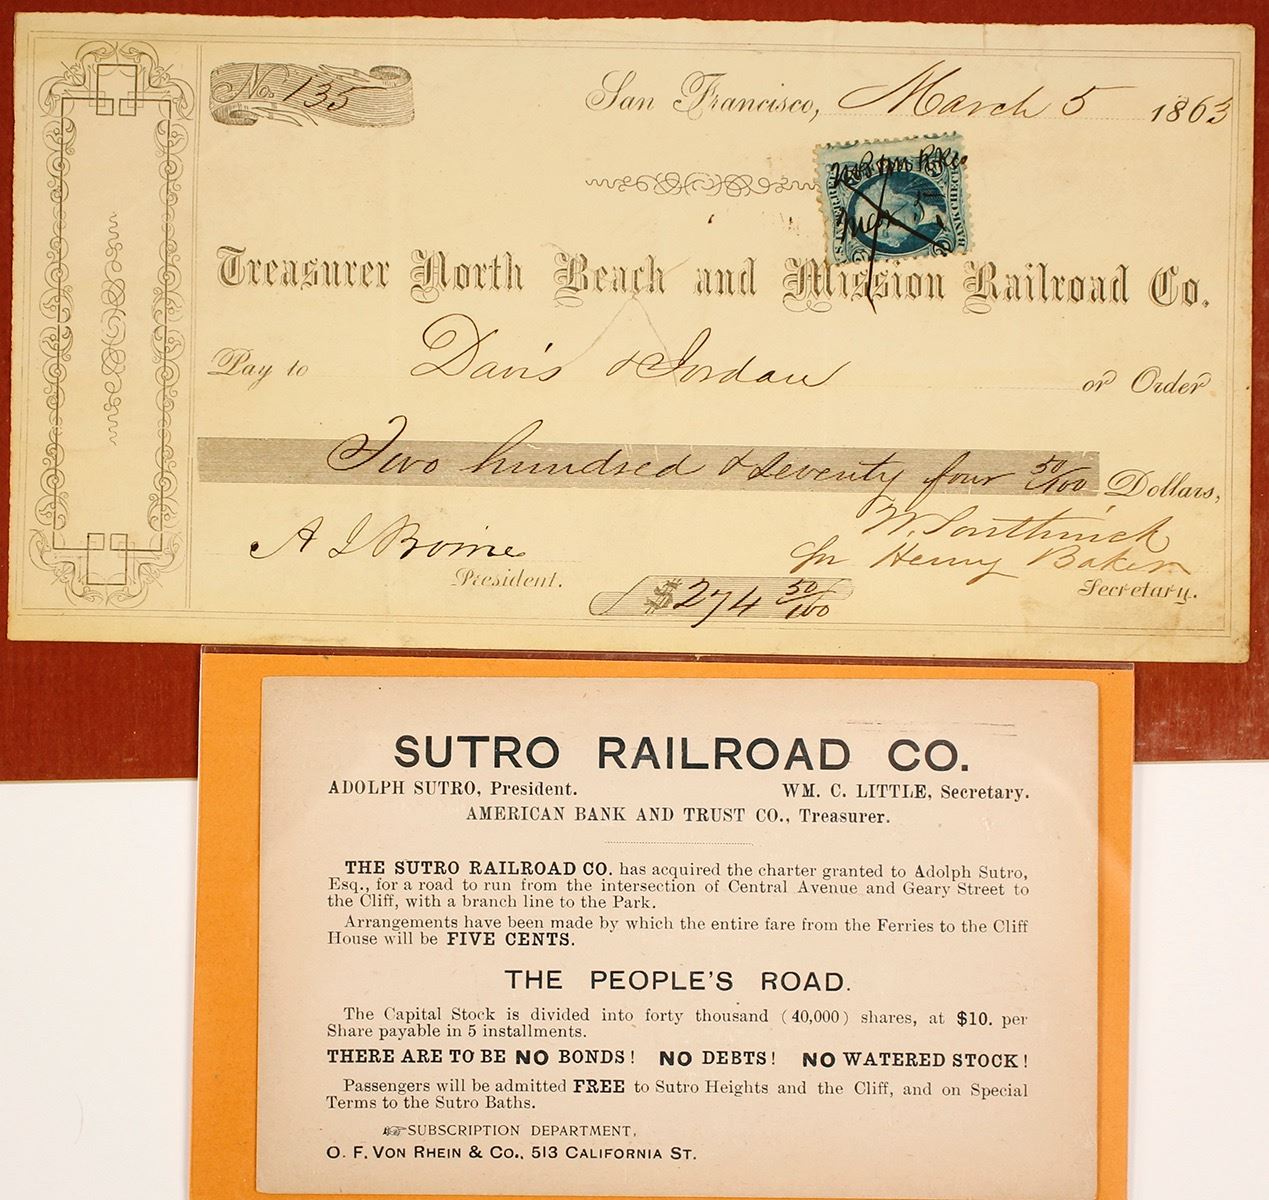 No. 135
San Francisco, March 5 1863
BANK CHECK
Mar 5
Treasurer North Beach and Mission Railroad Co.
Pay to Davis & Jordan or Order
Two hundred & seventy four 50/100 Dollars,
W. Southwick
for Henry Baker
A J Bowie
President.
Secretary.
$274 50/100
SUTRO RAILROAD CO.
ADOLPH SUTRO, President. WM. C. LITTLE, Secretary.
AMERICAN BANK AND TRUST CO., Treasurer.
THE SUTRO RAILROAD CO. has acquired the charter granted to Adolph Sutro,
Esq., for a road to run from the intersection of Central Avenue and Geary Street to
the Cliff, with a branch line to the Park.
Arrangements have been made by which the entire fare from the Ferries to the Cliff
House will be FIVE CENTS.
THE PEOPLE'S ROAD.
The Capital Stock is divided into forty thousand (40,000) shares, at $10. per
Share payable in 5 installments.
THERE ARE TO BE NO BONDS! NO DEBTS! NO WATERED STOCK!
Passengers will be admitted FREE to Sutro Heights and the Cliff, and on Special
Terms to the Sutro Baths.
SUBSCRIPTION DEPARTMENT,
O. F. VON RHEIN & CO., 513 CALIFORNIA ST.